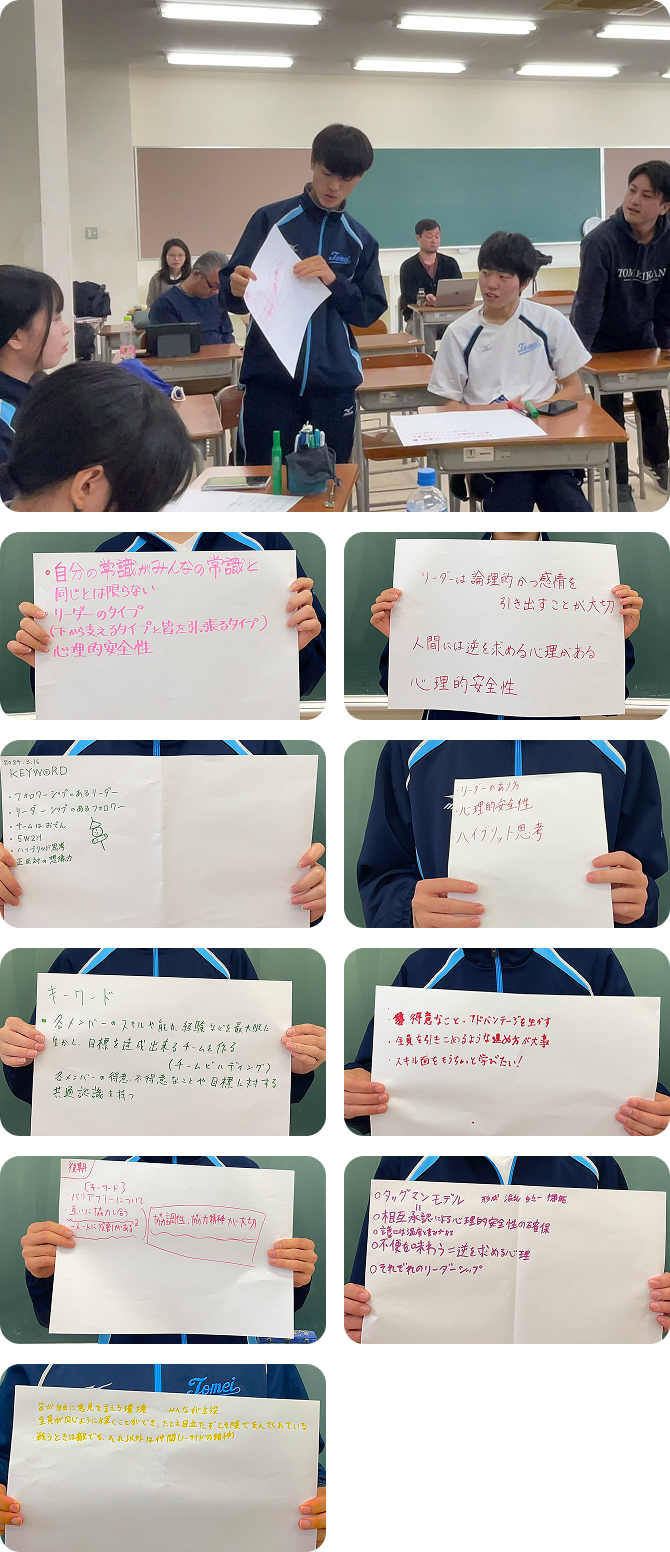 Tomei
TOMEIKAN
Tomei
・自分の常識がみんなの常識と
同じとは限らない
・リーダーのタイプ
(下から支えるタイプと皆を引っ張るタイプ)
・心理的安全性
リーダーは論理的かつ感情を
引き出すことが大切
人間には逆を求める心理がある
心理的安全性
2024.3.16
KEYWORD
・フォロワーシップのあるリーダー
・リーダーシップのあるフォロワー
・チームはおでん
・5W2H
・ハイブリッド思考
・正反対の想像力
・リーダーのあり方
・心理的安全性
ハイブリット思考
キーワード
各メンバーのスキルや能力、経験などを最大限に
生かし、目標を達成出来るチームを作る
(チームビルディング)
各メンバーの得意、不得意なことや目標に対する
共通認識を持つ
・得意なこと・アドバンテージを生かす
・全員を引きこめるような進め方が大事
・スキル面をもうちょっと学びたい!
後期
[キーワード]
・バリアフリーについて
・互いに協力し合う
協調性、協力精神が大切
○タックマンモデル
○相互承認による心理的安全性の確保
○不便を味わう=逆を求める心理
○それぞれのリーダーシップ
Tomei
皆が自由に意見を言える環境 みんなが主役
全員が同じように輝くことができ、たとえ目立たずとも陰で支えてくれている
戦うときは敵でも、それ以外は仲間(ノーサイドの精神)